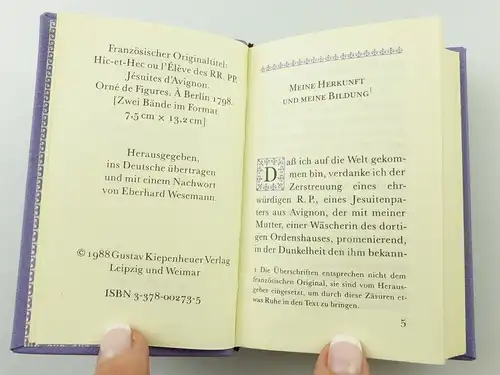 Französischer Originaltitel:
Hic-et-Hec ou l'Élève des RR. PP.
Jésuites d'Avignon.
Orné de Figures. À Berlin 1798.
[Zwei Bände im Format
7,5 cm × 13,2 cm]
Herausgegeben,
ins Deutsche übertragen
und mit einem Nachwort
von Eberhard Wesemann
© 1988 Gustav Kiepenheuer Verlag
Leipzig und Weimar
ISBN 3-378-00273-5
Meine Herkunft
und meine Bildung¹
Daß ich auf die Welt gekom-
men bin, verdanke ich der
Zerstreuung eines ehr-
würdigen R. P., eines Jesuitenpa-
ters aus Avignon, der mit meiner
Mutter, einer Wäscherin des dorti-
gen Ordenshauses, promenierend,
in der Dunkelheit den ihm bekann-
1 Die Überschriften entsprechen nicht dem
französischen Original, sie sind vom Heraus-
geber eingesetzt, um durch diese Zäsuren et-
was Ruhe in den Text zu bringen.
5